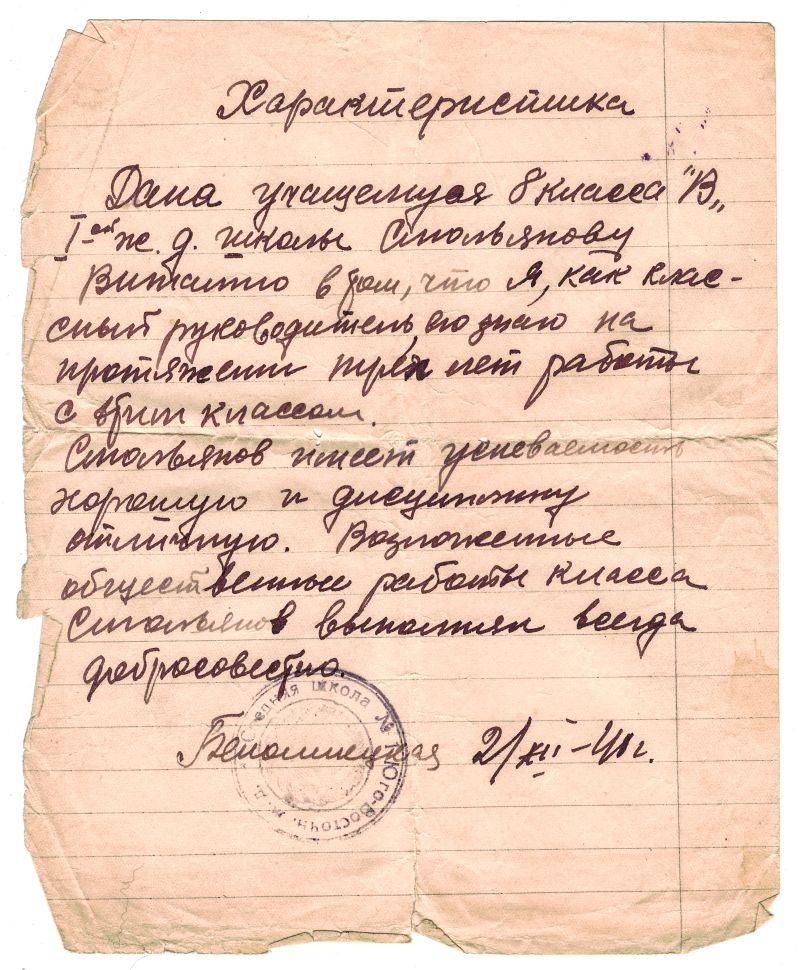 Характеристика
Дана учащемуся 8 класса "В"
I-ой ж. д. школы Смольянову
Виталию в том, что я, как клас-
сный руководитель, его знаю на
протяжении трёх лет работы
с этим классом.
Смольянов имеет успеваемость
хорошую и дисциплину
отличную. Возложенные
общественные работы класса
Смольянов выполнял всегда
добросовестно.
21/XII-40 г.
Средняя школа № 1 Юго-Восточн. ж. д.